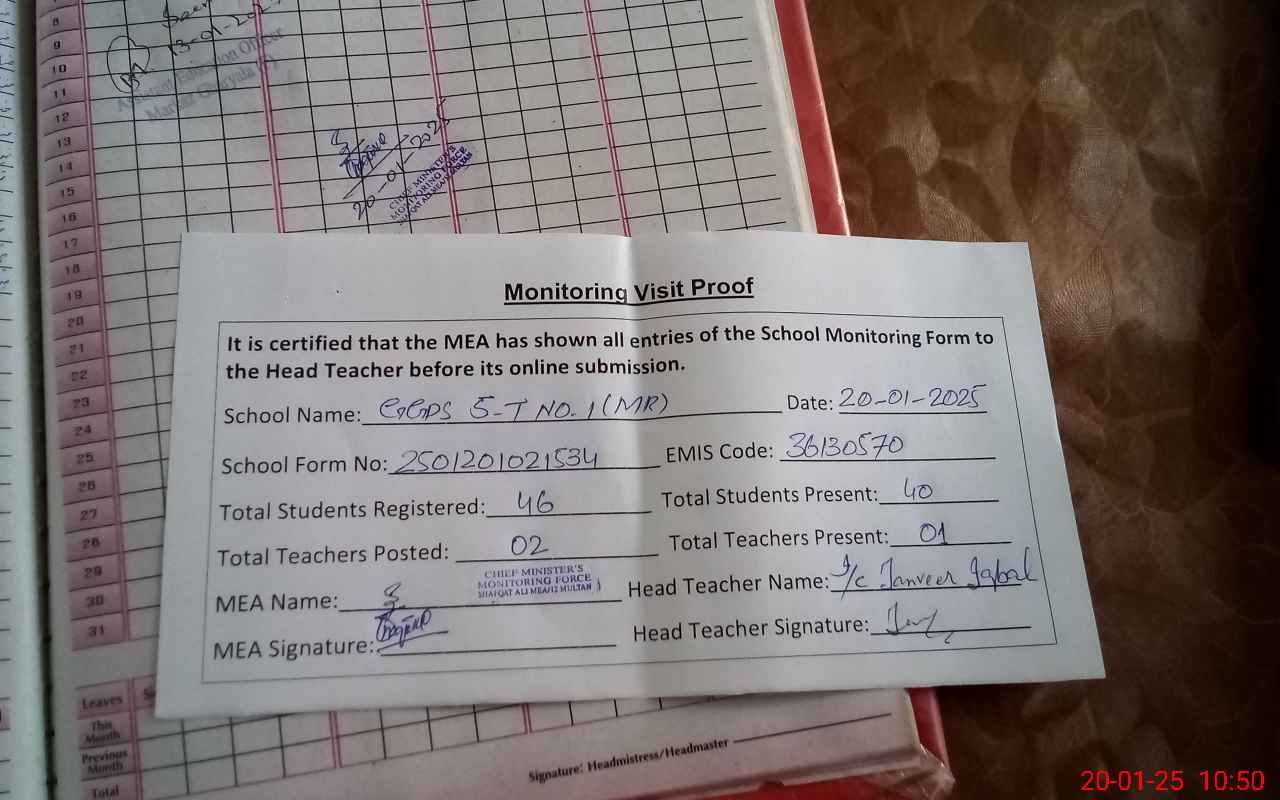 8
9
10
11
12
13
14
15
16
17
18
19
20
21
22
23
24
25
26
27
28
29
30
31
13-01-202
Assistant Education Officer
20-01-2025
CHIEF MINISTER'S
MONITORING FORCE
Monitoring Visit Proof
It is certified that the MEA has shown all entries of the School Monitoring Form to
the Head Teacher before its online submission.
School Name: GGPS 5-T NO. 1 (MR) Date: 20-01-2025
School Form No: 2501201021534 EMIS Code: 36130570
Total Students Registered: 46 Total Students Present: 40
Total Teachers Posted: 02 Total Teachers Present: 01
CHIEF MINISTER'S
MONITORING FORCE
SHAFQAT ALI MEA#12 MULTAN
MEA Name: Head Teacher Name: I/c Tanveer Iqbal
MEA Signature: Head Teacher Signature:
Leaves
This
Month
Previous
Month
Total
Signature: Headmistress/Headmaster
20-01-25 10:50